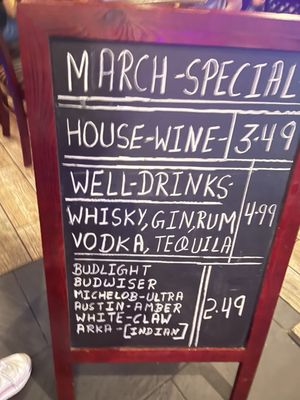 MARCH-SPECIAL
HOUSE-WINE- 3.49
WELL-DRINKS-
WHISKY, GIN, RUM 4.99
VODKA, TEQUILA
BUDLIGHT
BUDWISER
MICHELOB-ULTRA
AUSTIN-AMBER 2.49
WHITE-CLAW
ARKA-[INDIAN]